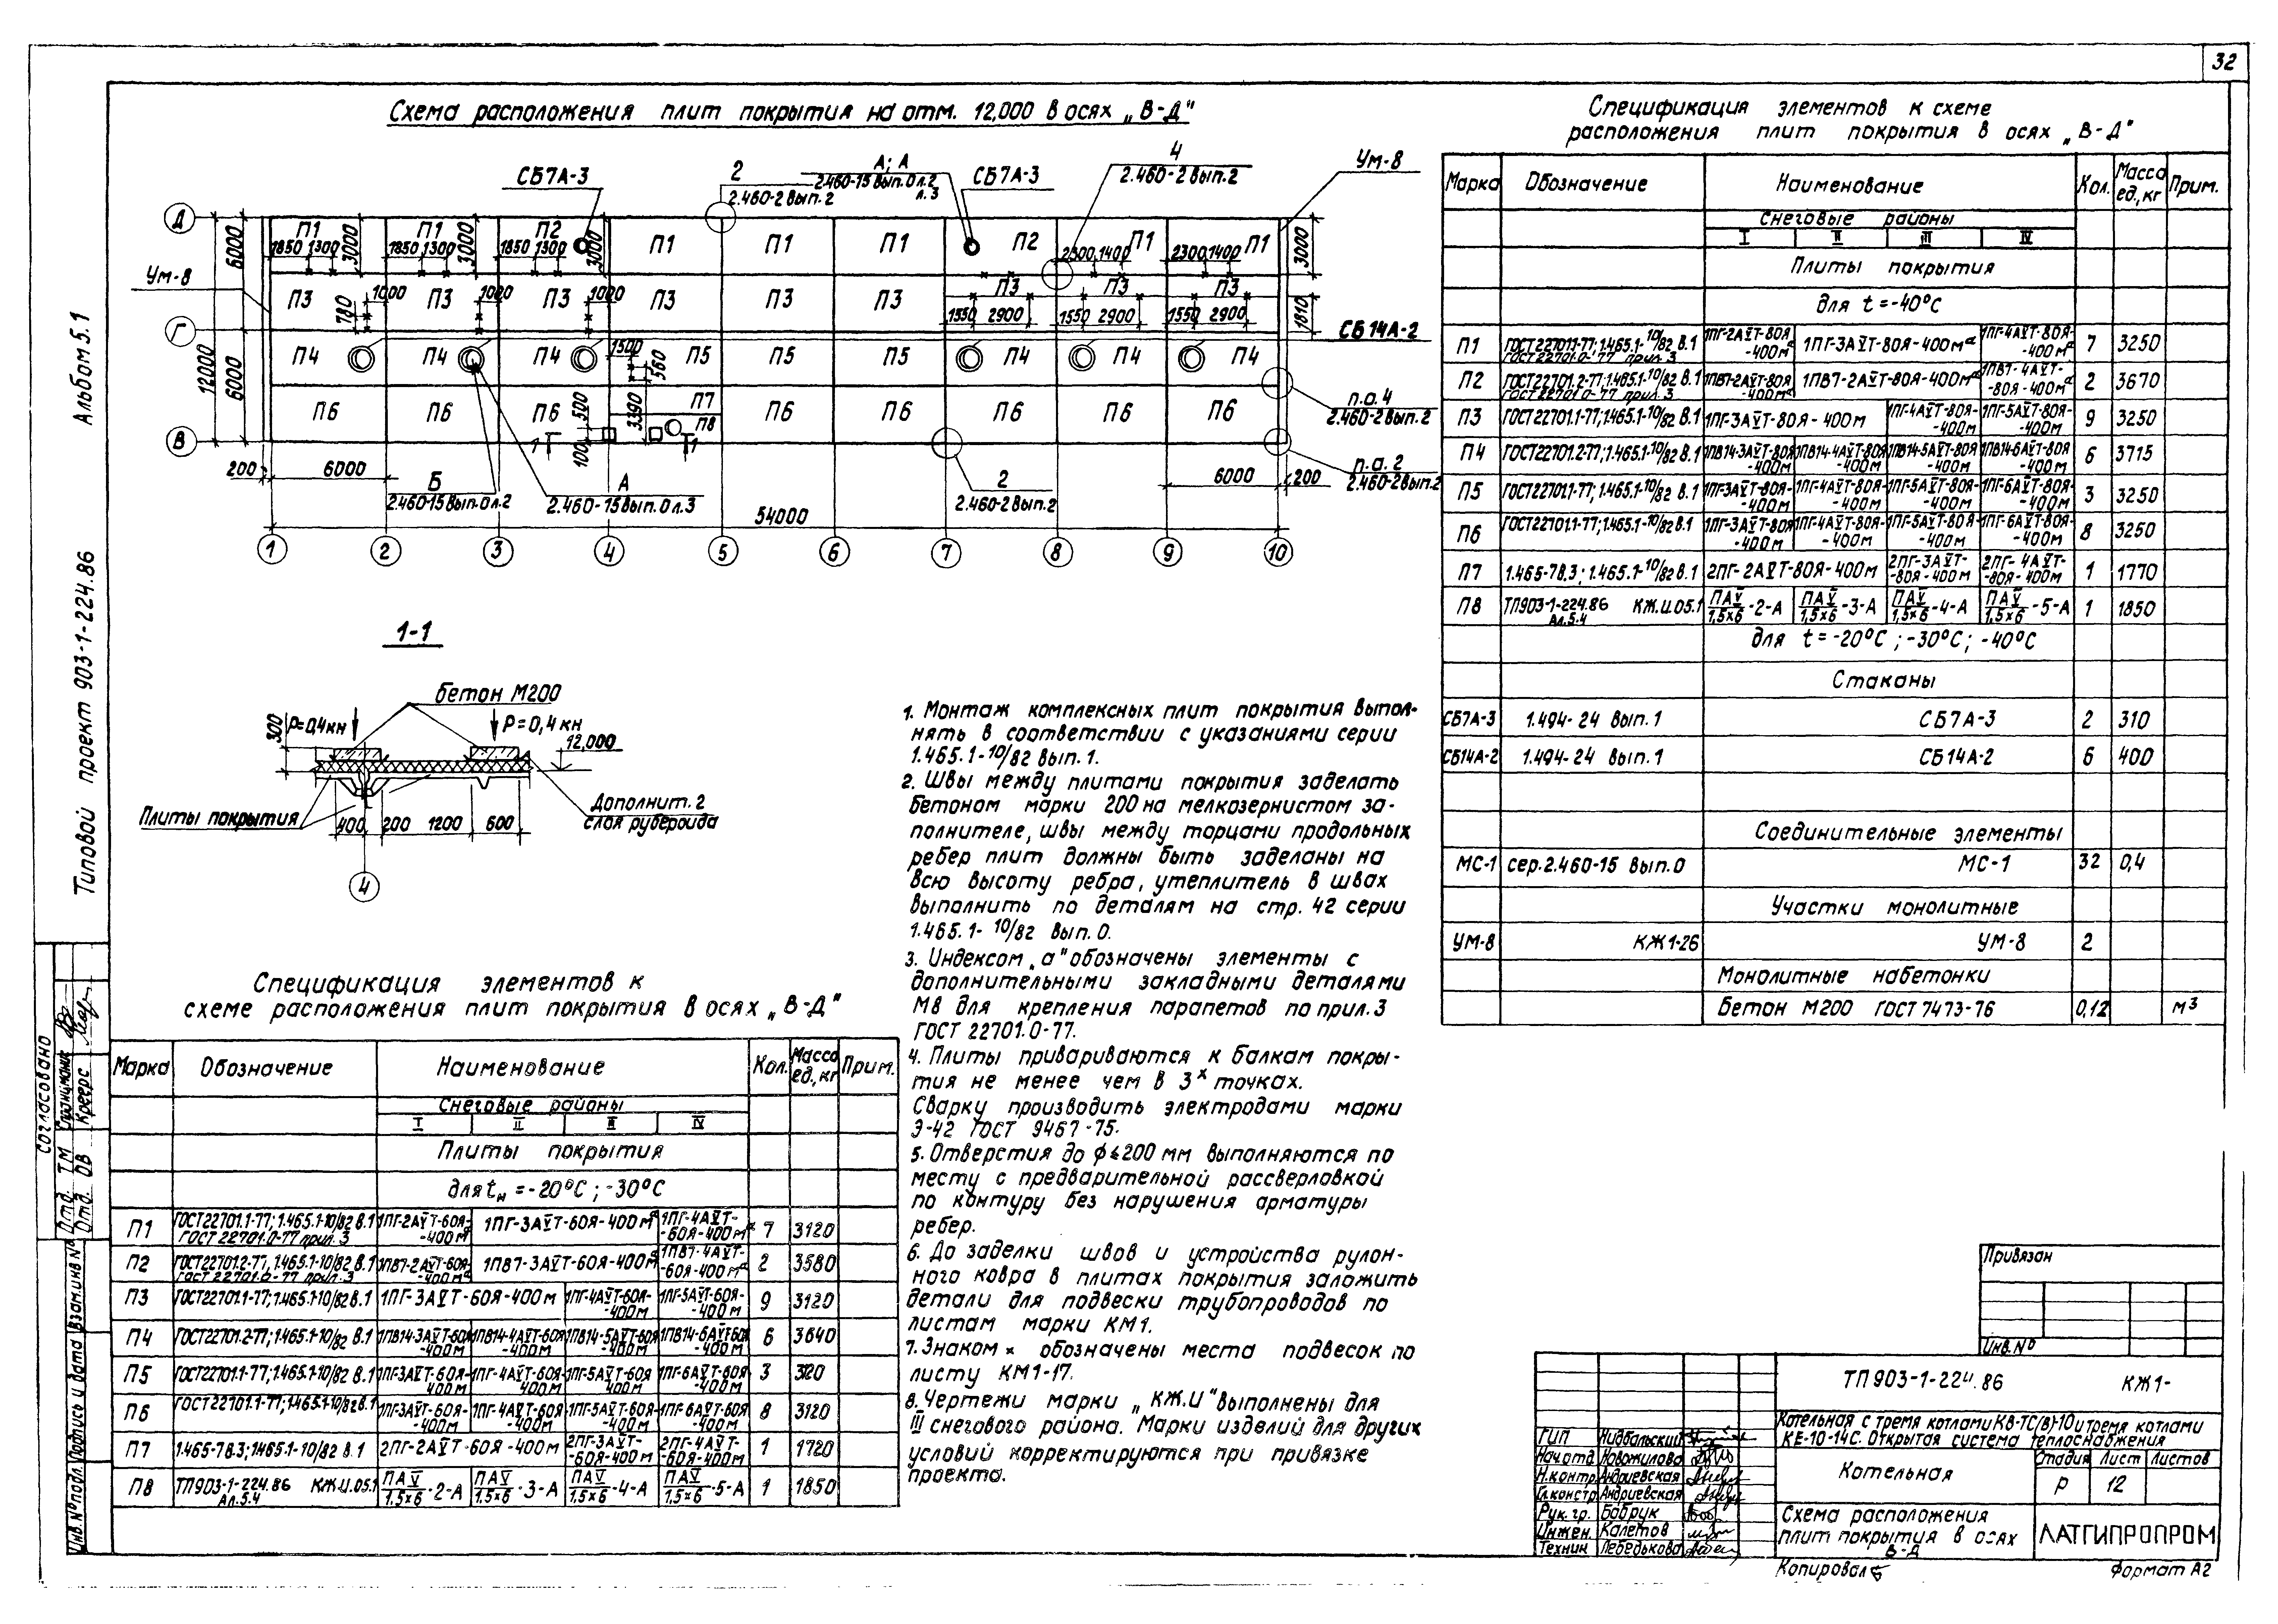 32
Схема расположения плит покрытия на отм. 12,000 в осях „В-Д"
СБ7А-3
2
2.460-2 вып.2
А; А
2.460-15 вып.0 л.2
л.3
СБ7А-3
4
2.460-2 вып.2
Ум-8
Д
П1 П1 П2 П1 П1 П1 П2 П1 П1
1850 1300 1850 1300 1850 1300 2300 1400 2300 1400
3000 3000 3000 3000
6000
Ум-8
П3 П3 П3 П3 П3 П3 П3 П3 П3
1000 1020 1020
780
1550 2900 1550 2900 1550 2900
1810
Г
СБ14А-2
П4 П4 П4 П5 П5 П5 П4 П4 П4
1500
560
12000
6000
П6 П6 П6 П7 П6 П6 П6 П6 П6
П8
500
3390
100
1 1
В
п.а. 4
2.460-2 вып.2
п.а. 2
2.460-2 вып.2
200 6000
Б
2.460-15 вып.0 л.2
А
2.460-15 вып.0 л.3
2
2.460-2 вып.2
6000 200
54000
1 2 3 4 5 6 7 8 9 10
1-1
бетон М200
Р=0,4кн Р=0,4кн
300
12,000
Плиты покрытия
Дополнит. 2
слоя рубероида
400 200 1200 600
4
Спецификация элементов к
схеме расположения плит покрытия в осях „В-Д"
Марка Обозначение Наименование Кол. Масса ед., кг Прим.
Снеговые районы
I II III IV
Плиты покрытия
для tн = -20°С ; -30°С
П1 ГОСТ22701.1-77; 1.465.1-10/82 в.1 ГОСТ 22701.0-77 прил.3 1ПГ-2АVТ-60Я-400мª 1ПГ-3АVТ-60Я-400мª 1ПГ-4АVТ-60Я-400мª 7 3120
П2 ГОСТ22701.2-77; 1.465.1-10/82 в.1 ГОСТ 22701.0-77 прил.3 1ПВ7-2АVТ-60Я-400мª 1ПВ7-3АVТ-60Я-400мª 1ПВ7-4АVТ-60Я-400мª 2 3580
П3 ГОСТ22701.1-77; 1.465.1-10/82 в.1 1ПГ-3АVТ-60Я-400м 1ПГ-4АVТ-60Я-400м 1ПГ-5АVТ-60Я-400м 9 3120
П4 ГОСТ22701.2-77; 1.465.1-10/82 в.1 1ПВ14-3АVТ-60Я-400м 1ПВ14-4АVТ-60Я-400м 1ПВ14-5АVТ-60Я-400м 1ПВ14-6АVТ-60Я-400м 6 3640
П5 ГОСТ22701.1-77; 1.465.1-10/82 в.1 1ПГ-3АVТ-60Я-400м 1ПГ-4АVТ-60Я-400м 1ПГ-5АVТ-60Я-400м 1ПГ-6АVТ-60Я-400м 3 3120
П6 ГОСТ22701.1-77; 1.465.1-10/82 в.1 1ПГ-3АVТ-60Я-400м 1ПГ-4АVТ-60Я-400м 1ПГ-5АVТ-60Я-400м 1ПГ-6АVТ-60Я-400м 8 3120
П7 1.465-7в.3; 1.465.1-10/82 в.1 2ПГ-2АVТ-60Я-400м 2ПГ-3АVТ-60Я-400м 2ПГ-4АVТ-60Я-400м 1 1720
П8 ТП903-1-224.86 КЖ.И.05.1 Ал.5.4 ПАV/1,5х6-2-А ПАV/1,5х6-3-А ПАV/1,5х6-4-А ПАV/1,5х6-5-А 1 1850
1. Монтаж комплексных плит покрытия выпол-
нять в соответствии с указаниями серии
1.465.1-10/82 вып. 1.
2. Швы между плитами покрытия заделать
бетоном марки 200 на мелкозернистом за-
полнителе, швы между торцами продольных
ребер плит должны быть заделаны на
всю высоту ребра, утеплитель в швах
выполнить по деталям на стр. 42 серии
1.465.1- 10/82 вып. 0.
3. Индексом „а" обозначены элементы с
дополнительными закладными деталями
М8 для крепления парапетов по прил.3
ГОСТ 22701.0-77.
4. Плиты привариваются к балкам покры-
тия не менее чем в 3х точках.
Сварку производить электродами марки
Э-42 ГОСТ 9467-75.
5. Отверстия до ф ≤ 200 мм выполняются по
месту с предварительной рассверловкой
по контуру без нарушения арматуры
ребер.
6. До заделки швов и устройства рулон-
ного ковра в плитах покрытия заложить
детали для подвески трубопроводов по
листам марки КМ1.
7. Знаком × обозначены места подвесок по
листу КМ1-17.
8. Чертежи марки „КЖ.И" выполнены для
III снегового района. Марки изделий для других
условий корректируются при привязке
проекта.
Спецификация элементов к схеме
расположения плит покрытия в осях „В-Д"
Марка Обозначение Наименование Кол. Масса ед., кг Прим.
Снеговые районы
I II III IV
Плиты покрытия
для t = -40°С
П1 ГОСТ22701.1-77; 1.465.1-10/82 в.1 ГОСТ 22701.0-77 прил.3 1ПГ-2АVТ-80Я-400мª 1ПГ-3АVТ-80Я-400мª 1ПГ-4АVТ-80Я-400мª 7 3250
П2 ГОСТ22701.2-77; 1.465.1-10/82 в.1 ГОСТ 22701.0-77 прил.3 1ПВ7-2АVТ-80Я-400мª 1ПВ7-2АVТ-80Я-400мª 1ПВ7-4АVТ-80Я-400мª 2 3670
П3 ГОСТ22701.1-77; 1.465.1-10/82 в.1 1ПГ-3АVТ-80Я-400м 1ПГ-4АVТ-80Я-400м 1ПГ-5АVТ-80Я-400м 9 3250
П4 ГОСТ22701.2-77; 1.465.1-10/82 в.1 1ПВ14-3АVТ-80Я-400м 1ПВ14-4АVТ-80Я-400м 1ПВ14-5АVТ-80Я-400м 1ПВ14-6АVТ-80Я-400м 6 3715
П5 ГОСТ22701.1-77; 1.465.1-10/82 в.1 1ПГ-3АVТ-80Я-400м 1ПГ-4АVТ-80Я-400м 1ПГ-5АVТ-80Я-400м 1ПГ-6АVТ-80Я-400м 3 3250
П6 ГОСТ22701.1-77; 1.465.1-10/82 в.1 1ПГ-3АVТ-80Я-400м 1ПГ-4АVТ-80Я-400м 1ПГ-5АVТ-80Я-400м 1ПГ-6АVТ-80Я-400м 8 3250
П7 1.465-7в.3; 1.465.1-10/82 в.1 2ПГ-2АVТ-80Я-400м 2ПГ-3АVТ-80Я-400м 2ПГ-4АVТ-80Я-400м 1 1770
П8 ТП903-1-224.86 КЖ.И.05.1 Ал.5.4 ПАV/1,5х6-2-А ПАV/1,5х6-3-А ПАV/1,5х6-4-А ПАV/1,5х6-5-А 1 1850
для t = -20°С ; -30°С ; -40°С
Стаканы
СБ7А-3 1.494-24 вып.1 СБ7А-3 2 310
СБ14А-2 1.494-24 вып.1 СБ14А-2 6 400
Соединительные элементы
МС-1 сер.2.460-15 вып.0 МС-1 32 0,4
Участки монолитные
УМ-8 КЖ1-26 УМ-8 2
Монолитные набетонки
Бетон М200 ГОСТ 7473-76 0,12 м3
Привязан
Инв.№
ТП 903-1-224.86 КЖ1-
Котельная с тремя котлами КВ-ТС(в)-10 и тремя котлами
КЕ-10-14С. Открытая система теплоснабжения
ГИП Нидбальский
Нач.отд. Новожилова
Н.контр. Андриевская
Гл.констр. Андриевская
Рук.гр. Бабрук
Инжен. Калетов
Техник Лебедькова
Котельная
Стадия Лист Листов
Р 12
Схема расположения
плит покрытия в осях
В-Д
ЛАТГИПРОПРОМ
Копировал
Формат А2
Альбом 5.1
Типовой проект 903-1-224.86
Согласовано
Отд. ТМ
Отд. ОВ Креерс
Инв.№подл. Подпись и дата Взам.инв.№